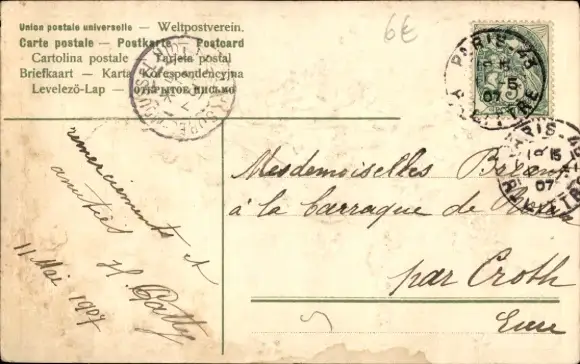 Union postale universelle — Weltpostverein.
Carte postale — Postkarte — Postcard
Cartolina postale — Tarjeta postal
Briefkaart — Karta Korespondencyjna
Levelező-Lap — ОТКРЫТОЕ ПИСЬМО
6€
PARIS
07
PARIS
15
07
remerciements et
amitiés
H.
11 Mai 1907
Mesdemoiselles
à la Barraque de
par Croth
Eure